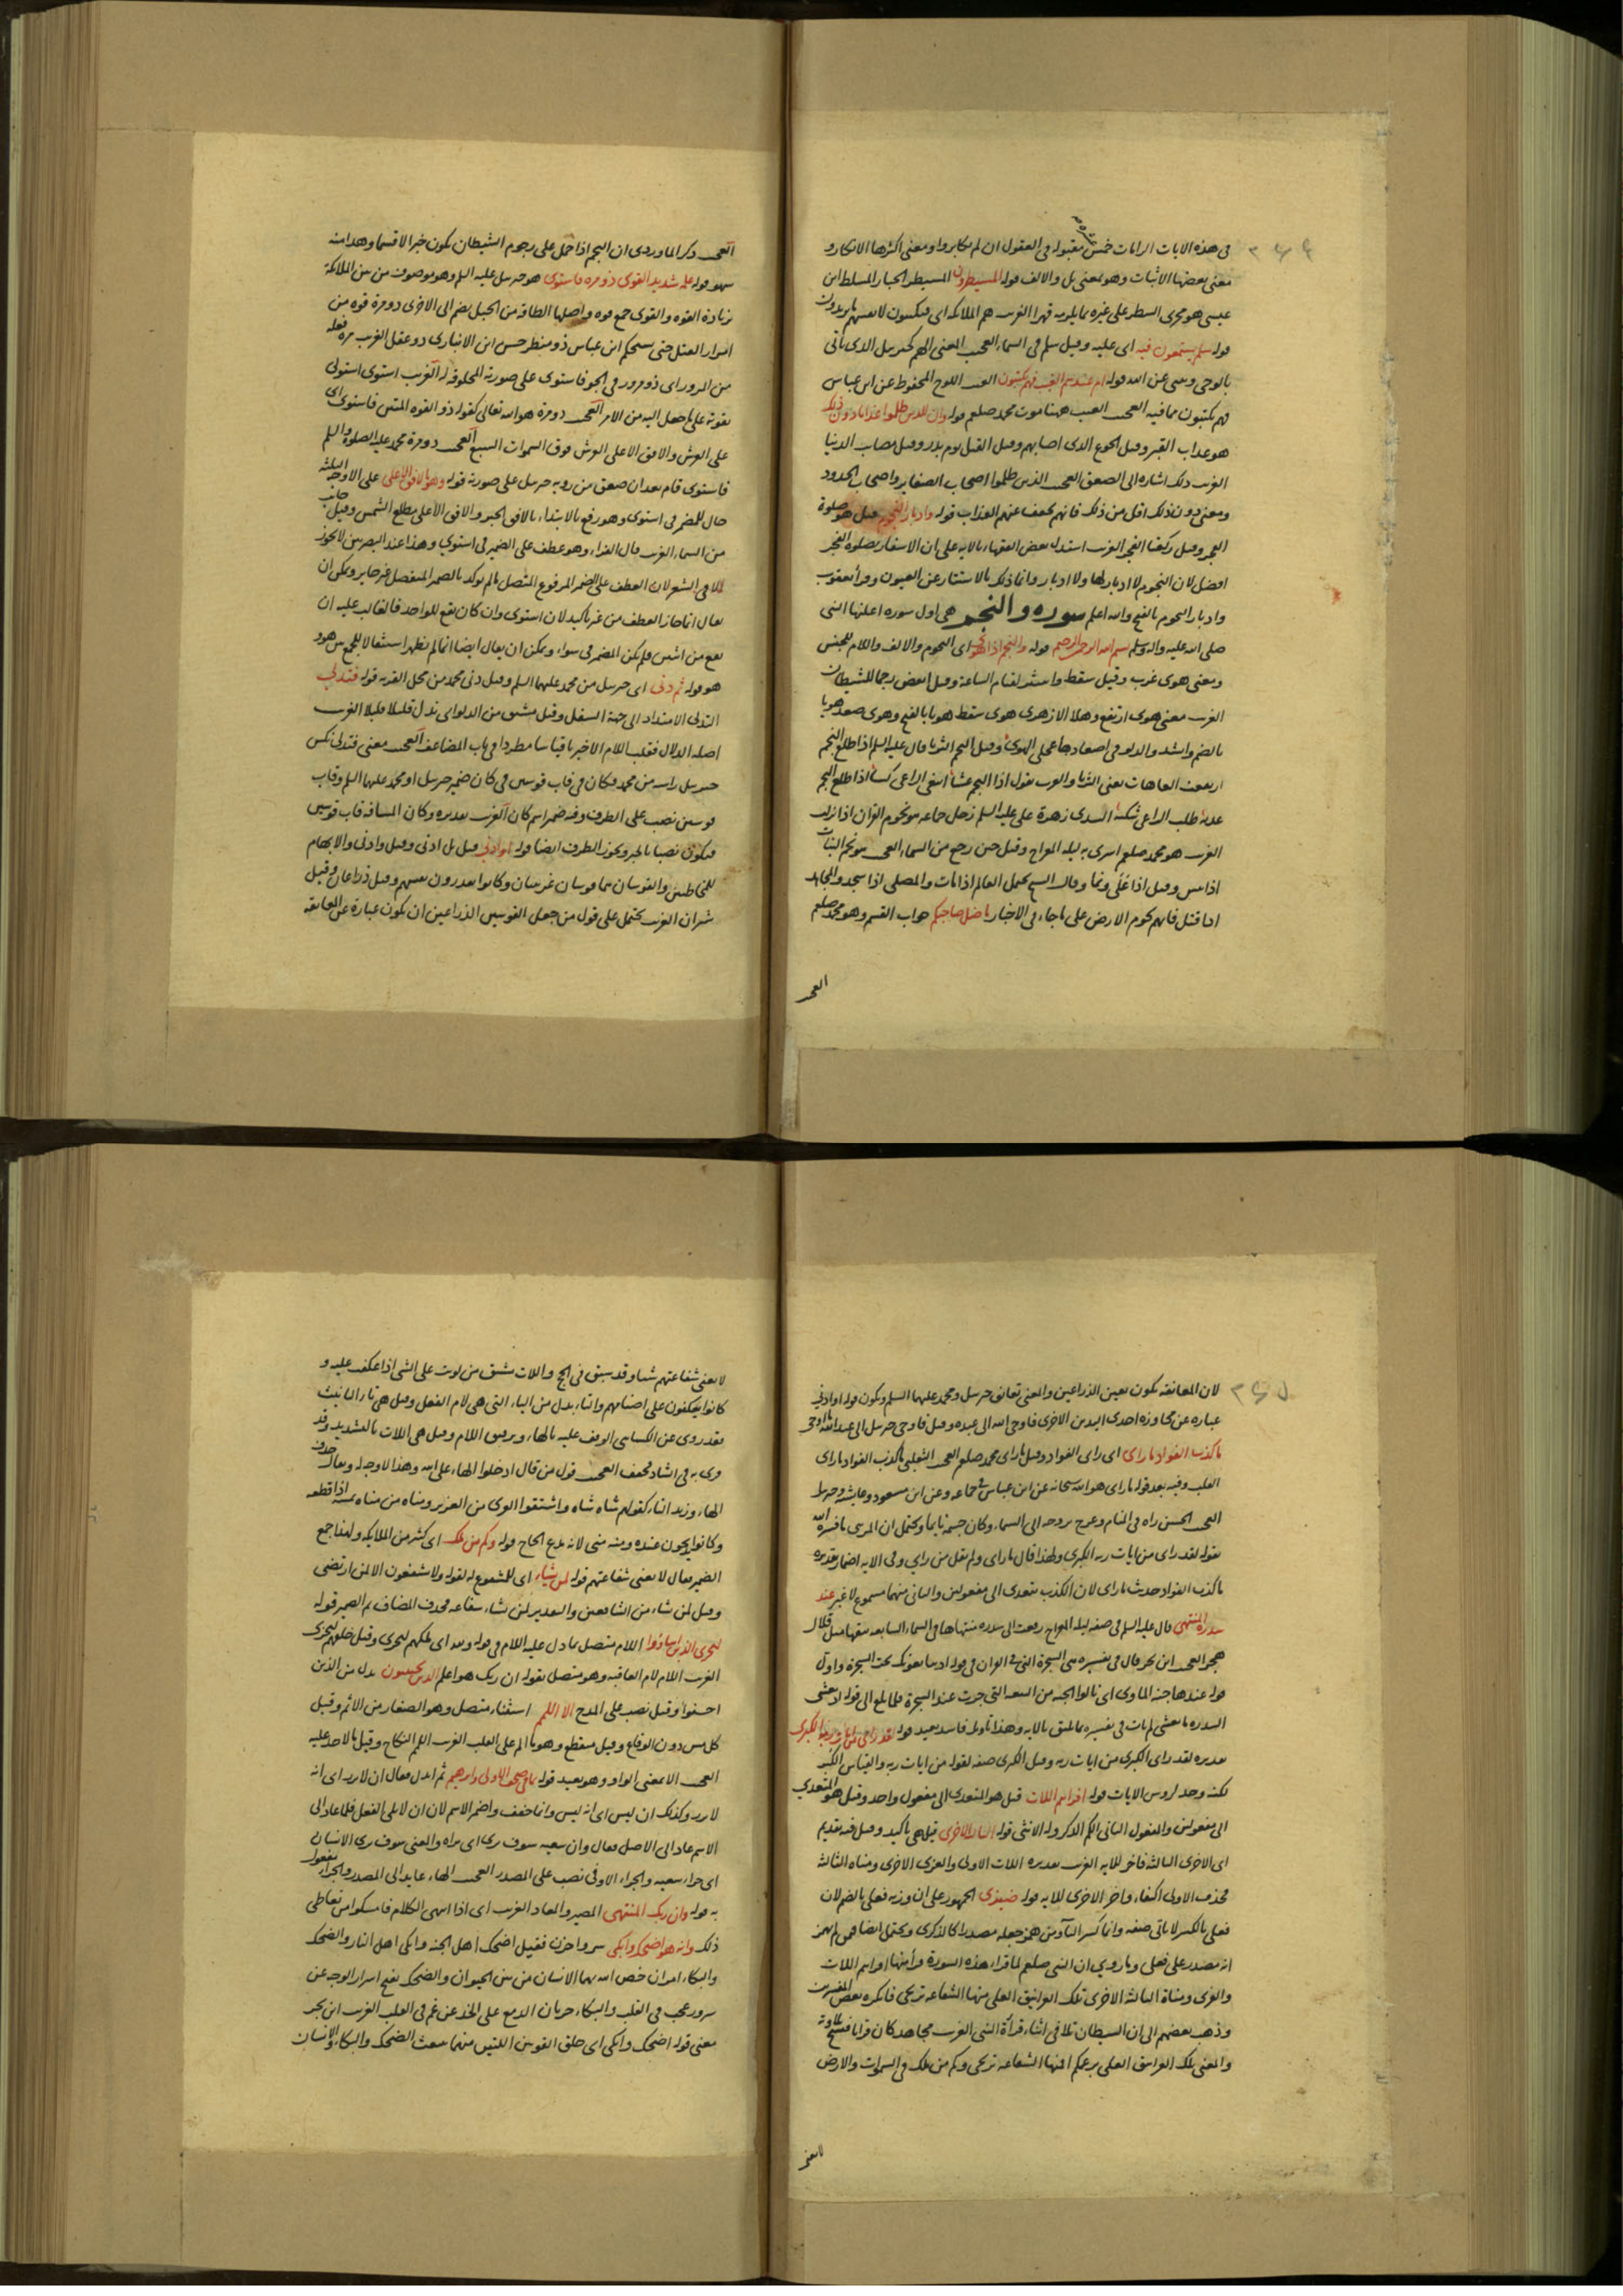 في هذه الايات الزامات خمس مقبوله في العقول ان لم يكابروا ومعنى اكثرها الانكار و
معنى بعضها الاثبات وهو بمعنى بل والالف قوله المسيطرون المسيطر الجبار المسلط ابن
عيسى هو مجرى السطر على غيره قهرا الغريب هم الملائكة اى
قوله سلم يستمعون فيه اى عليه وقيل سلم في السماء العجيب المعنى الهم كجبريل الذى ياتى
بالوحى عن الله قوله ام عندهم الغيب فهم يكتبون الغيب اللوح المحفوظ عن ابن عباس
فهم يكتبون ما فيه العجيب الغيب ههنا موت محمد صلعم قوله وان للذين ظلموا عذابا دون ذلك
هو عذاب القبر وقيل الجوع الذى اصابهم وقيل القتل يوم بدر وقيل مصايب الدنيا
الغريب ذلك اشارة الى الصعق العجيب الذين ظلموا اصحاب الصغاير واصحاب الحدود
ومعنى دون ذلك اقل من ذلك فانهم يخفف عنهم العذاب قوله وادبار النجوم قيل هو صلوة
الفجر وقيل ركعتا الفجر الغريب استدل بعض الفقهاء بالايه على ان الاسفار بصلوة الفجر
افضل لان النجوم لا ادبار لها ولا ادبار وانما ذلك بالاستتار عن العيون وقرأ يعقوب
وادبار النجوم بالفتح والله اعلم سورة والنجم هي اول سورة اعلنها النبى
صلى الله عليه واله وسلم بسم الله الرحمن الرحيم قوله والنجم اذا هوى اى النجوم والالف واللام للجنس
ومعنى هوى غرب وقيل سقط وانتثر لقيام الساعة وقيل انقض رجما للشيطان
الغريب معنى هوى ارتفع وهلا الازهرى هوى سقط هويا بالفتح وهوى صعد هويا
بالضم وانشد والدلو في اصعادها عجلى الهوى وقيل النجم الثريا قال عليه السلم اذا طلع النجم
ارتفعت العاهات يعنى الثريا والعرب تقول اذا النجم عشاء ابتغى الراعى كساء اذا طلع النجم
غدية طلب الراعى شكية السدى زهرة على عليه السلم زحل جماعة هو نجوم القران اذا نزلت
الغريب هو محمد صلعم اسرى به ليلة المعراج وقيل حين رجع من السماء العجيب هو نجم النبات
اذا يبس وقيل اذا وقال يحتمل العالم اذا مات والمصلى اذا سجد والمجاهد
اذا قتل فانهم نجوم الارض على ما جاء في الاخبار ما ضل صاحبكم جواب القسم وهو محمد صلعم
العجيب
العجيب ذكر الماوردى ان النجم اذا حمل على رجوم الشيطان يكون خبرا لا قسما وهذا منه
سهو قوله علمه شديد القوى ذو مرة فاستوى هو جبريل عليه السلم وهو موصوف من بين الملائكة
بزيادة القوة والقوى جمع قوة واصلها الطاقة من الحبل يضم الى الاخرى ذو مرة قوة من
امرار الفتل حتى يستحكم ابن عباس ذو منظر حسن ابن الانبارى ذو عقل الغريب مرة فعلة
من المرور اى ذو مرور في الجو فاستوى على صورته المخلوقة له الغريب استوى استولى
بقوته على ما جعل اليه من الامر العجيب ذو مرة هو الله تعالى كقوله ذو القوة المتين فاستوى اى
على العرش والافق الاعلى العرش فوق السموات السبع العجيب ذو مرة محمد عليه الصلوة والسلم
فاستوى قام بعد ان صعق من رؤية جبريل على صورته قوله وهو بالافق الاعلى على الاوجه الثلثة
حال للضمير في استوى وهو رفع بالابتداء بالافق الخبر والافق الاعلى مطلع الشمس وقيل جانب
من السماء الغريب قال الفراء وهو عطف على الضمير في استوى وهذا عند البصريين لا يجوز
الا في الشعر لان العطف على الضمير المرفوع المتصل ما لم يوكد بالضمير المنفصل غير جايز ويمكن ان
يقال انما جاز العطف من غير تاكيد لان استوى وان كان يقع للواحد فالغالب عليه ان
يقع من اثنين فلم يكن المضمر في سواء ويمكن ان يقال ايضا انما لم يظهر استثقالا للجمع بين هو و
هو قوله ثم دنى اى جبريل من محمد عليهما السلم وقيل دنى محمد من محل القربه قوله فتدلى
التدلى الامتداد الى جهة السفل وقيل مشتق من الدلو اى نزل قليلا قليلا الغريب
اصله الدلال فقلب اللام الاخير يا قياسا مطردا في باب المضاعف العجيب معنى فتدلى نكس
جبريل راسه من محمد فكان في قاب قوسين في كان ضمير جبريل او محمد عليهما السلم وقاب
قوسين نصب على الظرف وفيه ضمير اسم كان الغريب تقديره وكان المسافة قاب قوسين
فيكون نصبا بالخبر ويجوز الظرف ايضا قوله او ادنى قيل بل ادنى وقيل وادنى والابهام
للمخاطبين والقوسان هما قوسان عربيتان وكانوا يقدرون بقسيهم وقيل ذراعان وقيل
شبران الغريب يحتمل على قول من جعل القوسين الذراعين ان يكون عبارة عن المعانقة
لان المعانقة تكون بعين الذراعين والمعنى تعانق جبريل ومحمد عليهما السلم ويكون قوله او ادنى
عبارة عن مجاوزة احدى اليدين الاخرى فاوحى الله الى عبده وقيل فاوحى جبريل الى عبد الله ما اوحى
ما كذب الفؤاد ما راى اى راى الفؤاد وقيل ما راى محمد صلعم العجيب الثعلبى ما كذب الفؤاد ما راى
القلب وفيه بعد قوله ما راى هو الله سبحانه عن ابن عباس في جماعة وعن ابن مسعود وعايشة جبريل
العجيب الحسن راه في المنام وعرج بروحه الى السماء وكان جسمه نايما ويحتمل ان المرئى ما فسره الله
بقوله لقد راى من ايات ربه الكبرى ولهذا قال ما راى ولم يقل من راى وفي الايه اضمار تقديره
ما كذب الفؤاد حديث ما راى لان الكذب يتعدى الى مفعولين والثانى منهما مسموع لا غير عند
سدرة المنتهى قال عليه السلم في صفة ليلة المعراج رفعت الى سدرة منتهاها في السماء السابعة نبقها مثل قلال
هجر العجيب ابن بحر قال في تفسيره هى الشجرة التى في القران في قوله اذ يبايعونك تحت الشجرة واول
قوله عندها جنة الماوى اى نالوا الجنة من البيعة التى جرت عند الشجرة فلما بلغ الى قوله اذ يغشى
السدرة ما يغشى لم يات في تفسيره ما يليق بالايه وهذا تاويل فاسد بعيد قوله لقد راى من ايات ربه الكبرى
تقديره لقد راى الكبرى من ايات ربه وقيل الكبرى صفة لقوله من ايات ربه والقياس الكبر
لكنه وحد لروس الايات قوله افرايتم اللات قيل هو المتعدى الى مفعول واحد وقيل هو المتعدى
الى مفعولين والمفعول الثانى الكم الذكر وله الانثى قوله الثالثة الاخرى قيل هى تاكيد وقيل فيه تقديم
اى الاخرى الثالثة فاخر للايه الغريب تقديره اللات الاولى والعزى الاخرى ومناة الثالثة
فحذف الاولى اكتفاء واخر الاخرى للايه قوله ضيزى الجمهور على ان وزنه فعلى بالضم لان
فعلى بالكسر لا ياتى صفة وانما كسر الفاء ومن همز جعله مصدرا كالذكرى ويحتمل ايضا فمن لم يهمز
انه مصدر على فعلى وما روى ان النبى صلعم لما قراء هذه السورة قرأ فيها افرايتم اللات
والعزى ومناة الثالثة الاخرى تلك الغرانيق العلى منها الشفاعة ترتجى فانكره بعض المفسرين
وذهب بعضهم الى ان الشيطان تلا في اثناء قراءة النبى الغريب مجاهد كان قرانا فنسخ تلاوته
والمعنى تلك الغرانيق العلى بزعمكم افمنها الشفاعة ترتجى وكم من ملك في السموات والارض
لا تغنى
لا تغنى شفاعتهم شيئا وقد سبق في الحج واللات مشتق من لويت على الشى اذا عكفت عليه و
كانوا يعكفون على اصنامهم والتاء بدل من الياء التى هى لام الفعل وقيل هى تاء التانيث
فقد روى عن الكسائى الوقف عليه بالهاء وترقيق اللام وقيل هى اللات بالتشديد وقد
قرى به في الشاذ فخفف العجيب قول من قال ادخلوا الهاء على الله وهذا لا وجه له ويقال حذف
الهاء وزيد التاء كقولهم شاه شاة واشتقوا العزى من العزيز ومناة من مناه يمنيه اذا قطعه
وكانوا يذبحون عنده ومنه منى لانه مذبح الحاج قوله وكم من ملك اى كثير من الملايكة ولهذا جمع
الضمير فقال لا تغنى شفاعتهم قوله لمن يشاء اى للمشفوع له لقوله ولا يشفعون الا لمن ارتضى
وقيل لمن شاء من الشافعين والتقدير لمن يشاء شفاعته فحذف المضاف ثم الضمير قوله
ليجزى الذين اساؤا اللام متصل بما دل عليه اللام في قوله ولله اى ملكهم ليجزى وقيل خلقهم ليجزى
الغريب اللام لام العاقبة وهو متصل بقوله ان ربك هو اعلم الذين يجتنبون بدل من الذين
احسنوا وقيل نصب على المدح الا اللمم استثناء متصل وهو الصغاير من الاثم وقيل
كل مس دون الوقاع وقيل منقطع وهو ما الم على القلب الغريب اللمم النكاح وقيل ما لا حد عليه
العجيب الا بمعنى الواو وهو بعيد قوله بما في صحف الاولى وابرهيم ثم ابدل فقال ان لا تزر اى انه
لا تزر وكذلك ان ليس اى انه ليس وانما خفف واضمر الاسم لان ان لا يلى الفعل فلما عاد الى
الاسم عاد الى الاصل فقال وان سعيه سوف يرى اى يراه والمعنى سوف يرى الانسان
اى جزاء سعيه والجزاء الاوفى نصب على المصدر العجيب الهاء عايد الى المصدر والجزاء مفعول
به قوله وان ربك المنتهى المصير والمعاد الغريب اى اذا انتهى الكلام فامسكوا من تعاطى
ذلك وانه هو اضحك وابكى سر واحزن فقيل اضحك اهل الجنة وابكى اهل النار والضحك
والبكاء امران خص الله بهما الانسان من بين الحيوان والضحك تفتح اسرار الوجه عن
سرور عجب في القلب والبكاء جريان الدمع على الخد عن غم في القلب الغريب ابن بحر
معنى قوله اضحك وابكى اى خلق القوتين اللتين منهما ينبعث الضحك والبكاء والانسان